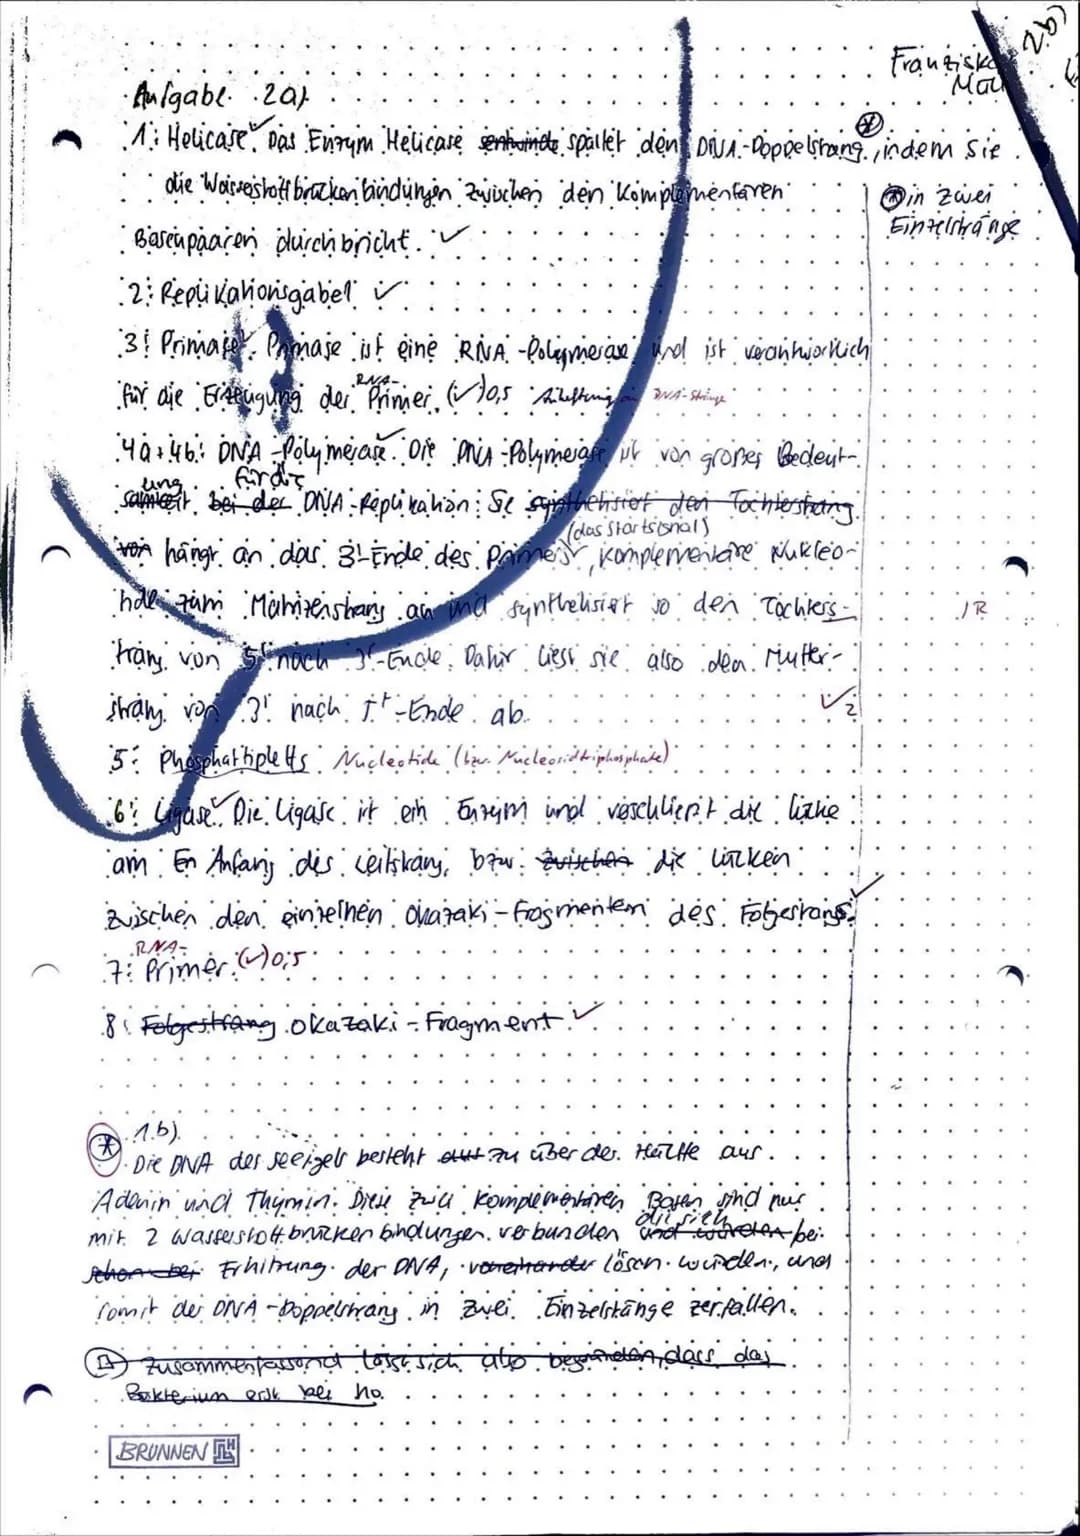 2b)
Franziska
Aufgabe 2a)
1: Helicase. Das Enzym Helicase entwinde spaltet den DNA-Doppelstrang, indem sie
die Wasserstoffbrückenbindungen zwischen den komplementären
in zwei
Einzelstränge
Basenpaaren durchbricht.
2: Replikationsgabel
3: Primase. Primase ist eine RNA-Polymerase und ist verantwortlich
RNA-
für die Erzeugung der Primer. (✓)0,5 Anheftung an DNA-Stränge
4a+4b: DNA-Polymerase. Die DNA-Polymerase ist von großer Bedeut-
ung für die
samkeit bei der DNA-Replikation. Sie synthetisiert den Tochterstrang
(das Startsignal)
von hängt an das 3'-Ende des Primers, komplementäre Nukleo-
tide zum Matrizenstrang an und synthetisiert so den Tochters-
/R
trang von 5' nach 3'-Ende. Dafür liest sie also den Mutter-
strang von 3' nach 5'-Ende ab.
✓2
5: Phosphattipletts Nucleotide (bzw. Nucleosidtriphosphate)
6: Ligase. Die Ligase ist ein Enzym und verschließt die Lücke
am En Anfang des Leitstrang, bzw. zwischen die Lücken
zwischen den einzelnen Okazaki-Fragmenten des Folgestrangs.
RNA-
7: Primer (✓)0,5
8: Folgestrang Okazaki-Fragment
1.b)
Die DNA des Seeigels besteht aus zu über der Hälfte aus
Adenin und Thymin. Diese zwei komplementären Basen sind nur
die sich
mit 2 Wasserstoffbrückenbindungen verbunden und würden bei
schon bei Erhitzung der DNA, voneinander lösen würden, und
somit der DNA-Doppelstrang in zwei Einzelstänge zerfallen.
Zusammenfassend lässt sich also begründen, dass das
Bakterium erst bei ho
BRUNNEN